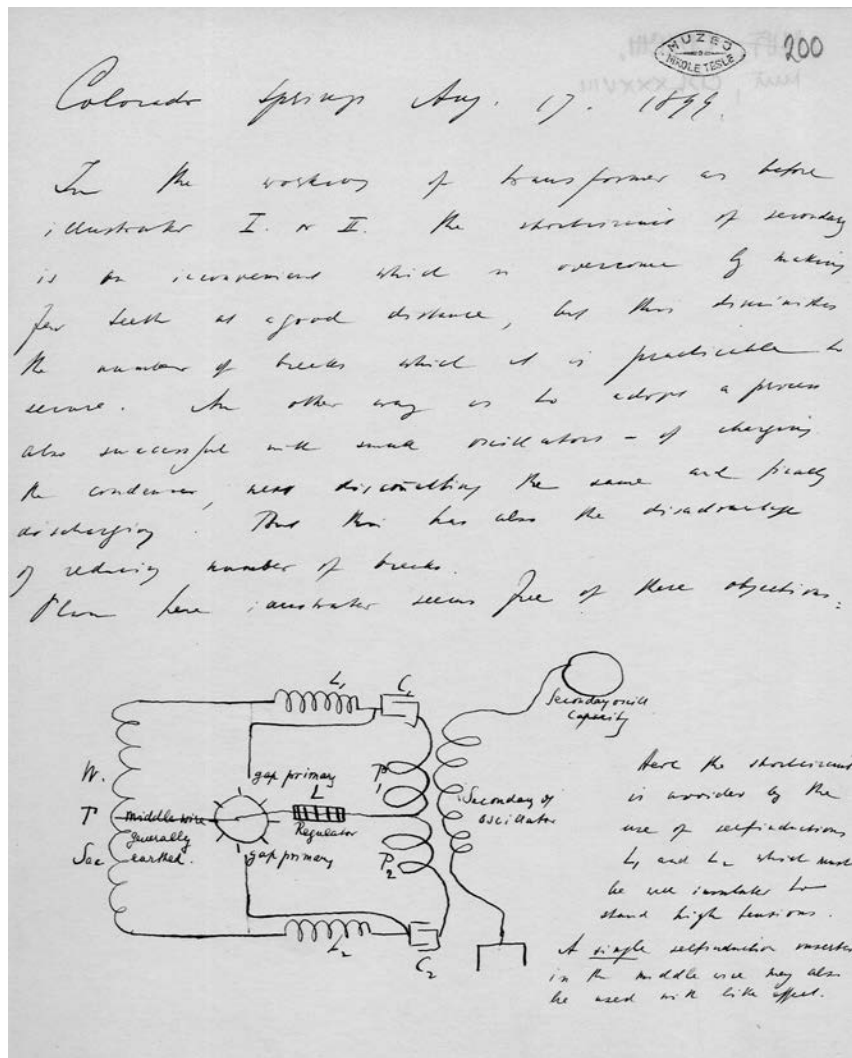 MUZEJ
NIKOLE TESLE
200
Colorado Springs Aug. 17. 1899.
In the working of transformer as before
illustrated I. or II. the shortcircuit of secondary
is an inconvenient which is overcome by making
few teeth at a good distance, but this diminishes
the number of breaks which it is practicable to
secure. An other way is to adopt a process
also successful with small oscillators – of charging
the condenser, next disconnecting the same and finally
discharging. But this has also the disadvantage
of reducing number of breaks.
Plan here illustrated seems free of these objections:
L₁
C₁
Secondary oscill
Capacity
W.
T
Sec
middle wire
generally
earthed.
gap primary
L
Regulator
gap primary
P₁
P₂
Secondary of
oscillator
L₂
C₂
Here the shortcircuit
is avoided by the
use of selfinductions
L₁ and L₂ which must
be well insulated to
stand high tensions.
A single selfinduction inserted
in the middle wire may also
be used with like effect.